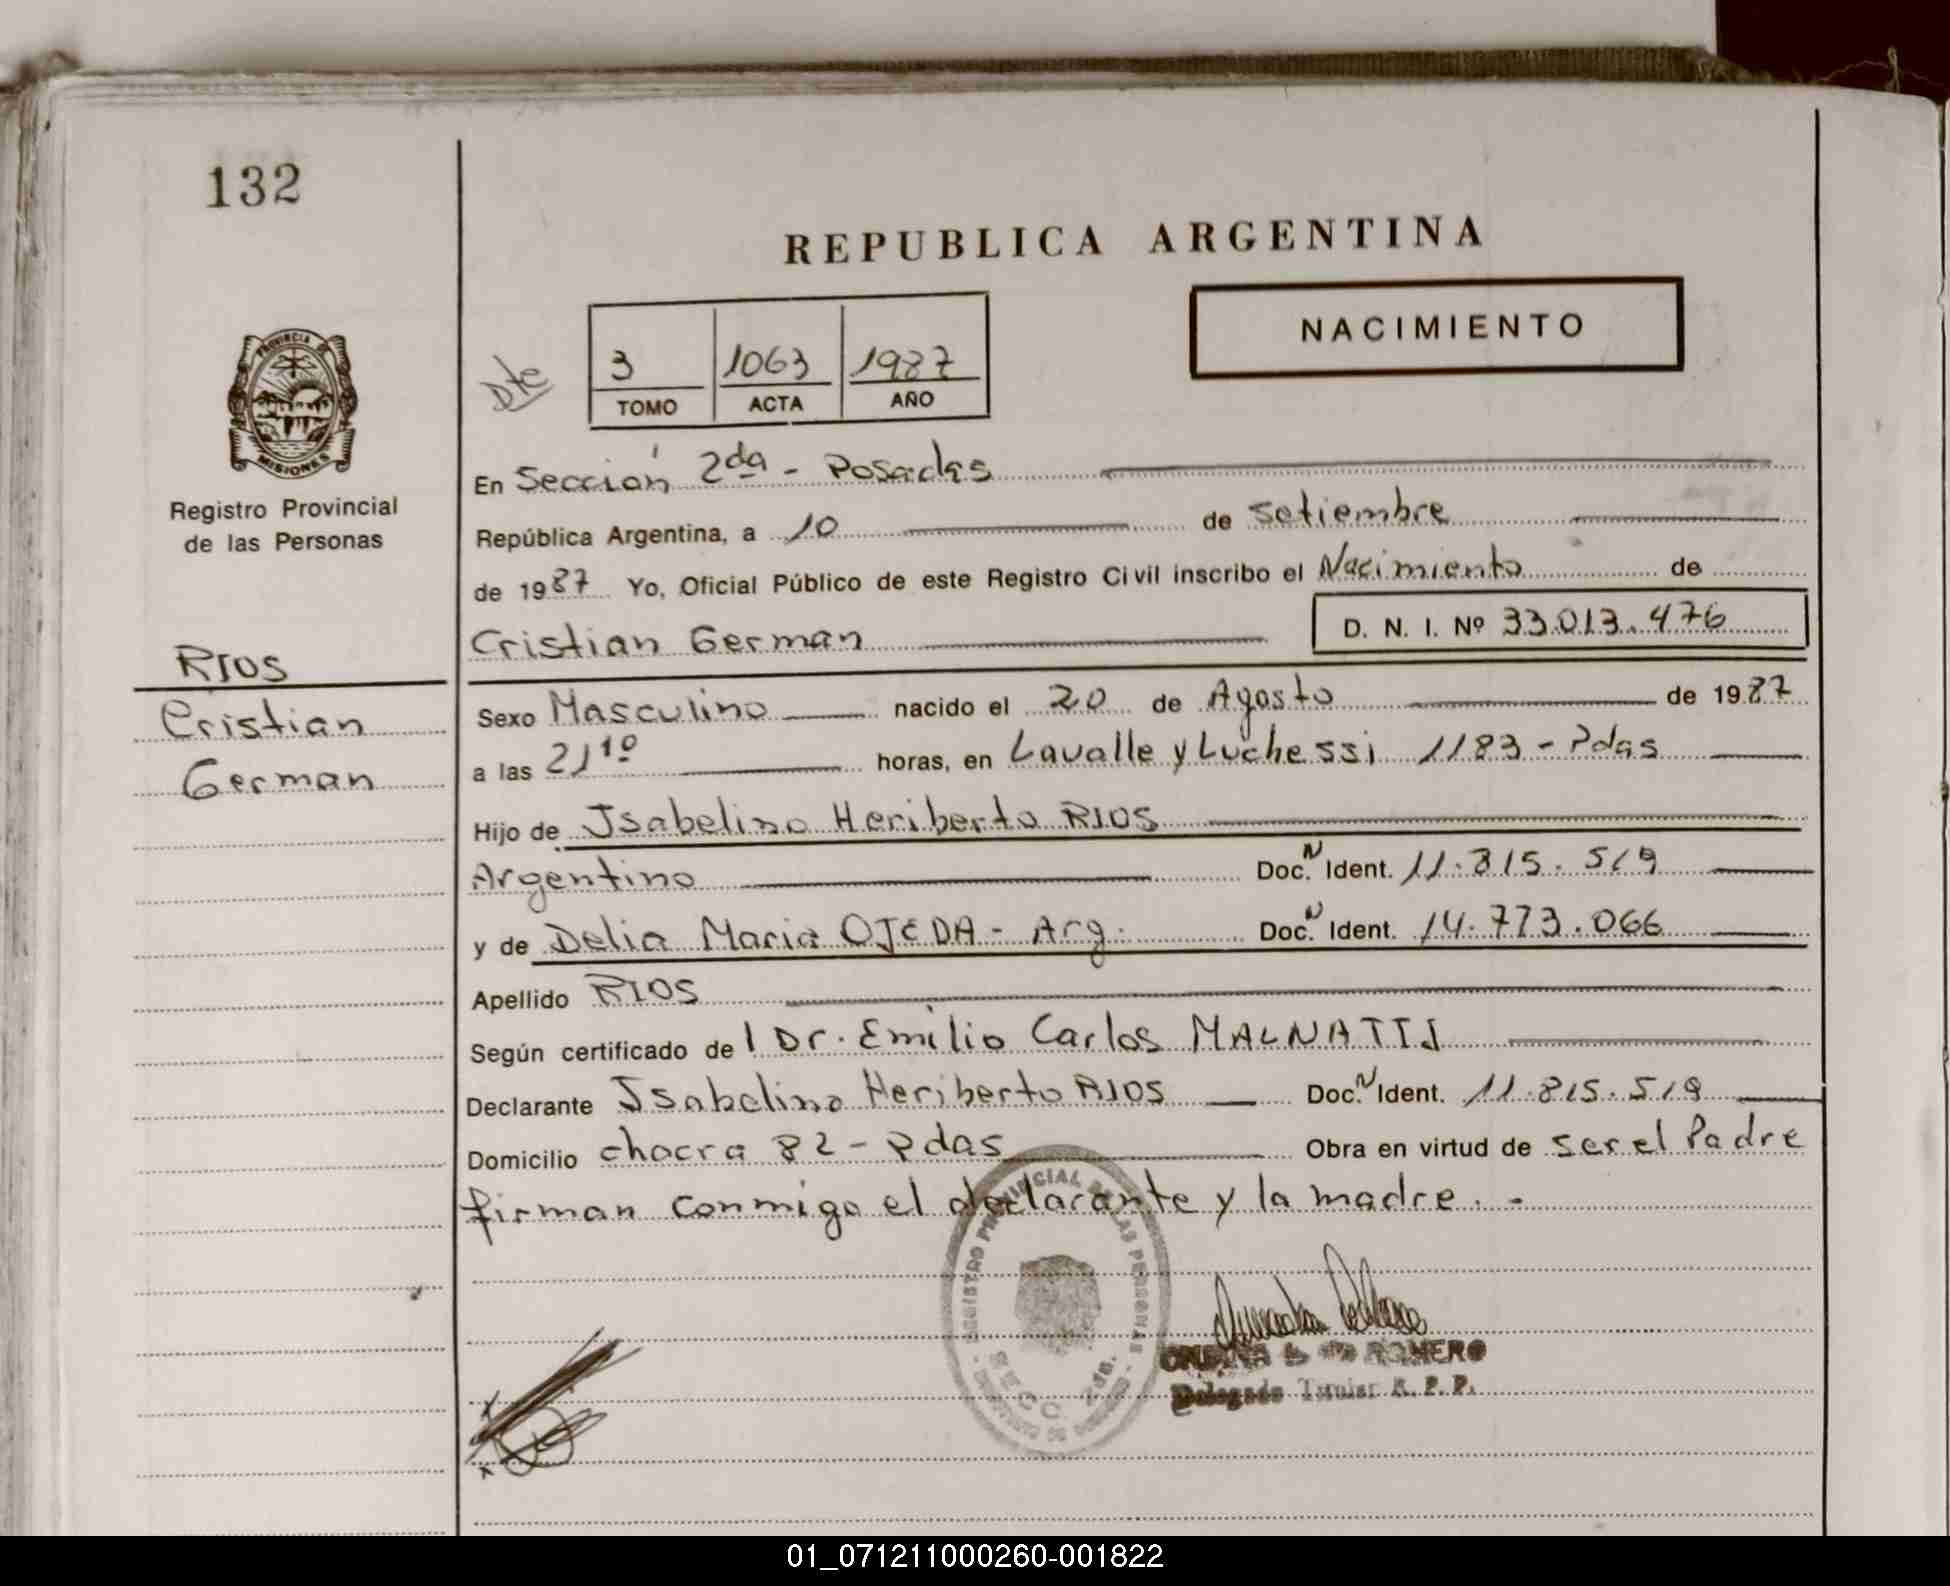 132
REPUBLICA ARGENTINA
NACIMIENTO
Dte
3 1063 1987
TOMO ACTA AÑO
PROVINCIA DE
MISIONES
Registro Provincial
de las Personas
En Sección 2da - Posadas
República Argentina, a 10 de setiembre
de 1987 Yo, Oficial Público de este Registro Civil inscribo el Nacimiento de
Cristian German D. N. I. Nº 33.013.476
RIOS
Cristian
German
Sexo Masculino nacido el 20 de Agosto de 1987
a las 21 10 horas, en Lavalle y Luchessi 1183 - Pdas
Hijo de Isabelino Heriberto RIOS
Argentino Doc. N Ident. 11.815.519
y de Delia Maria OJEDA - Arg. Doc. N Ident. 14.773.066
Apellido RIOS
Según certificado del Dr. Emilio Carlos MALNATTI
Declarante Isabelino Heriberto RIOS Doc. N Ident. 11.815.519
Domicilio chacra 82 - Pdas Obra en virtud de ser el Padre
firman conmigo el declarante y la madre. -
REGISTRO PROVINCIAL DE LAS PERSONAS
SECC. 2da.
ROMERO
Delegado Titular R. P. P.
01_071211000260-001822